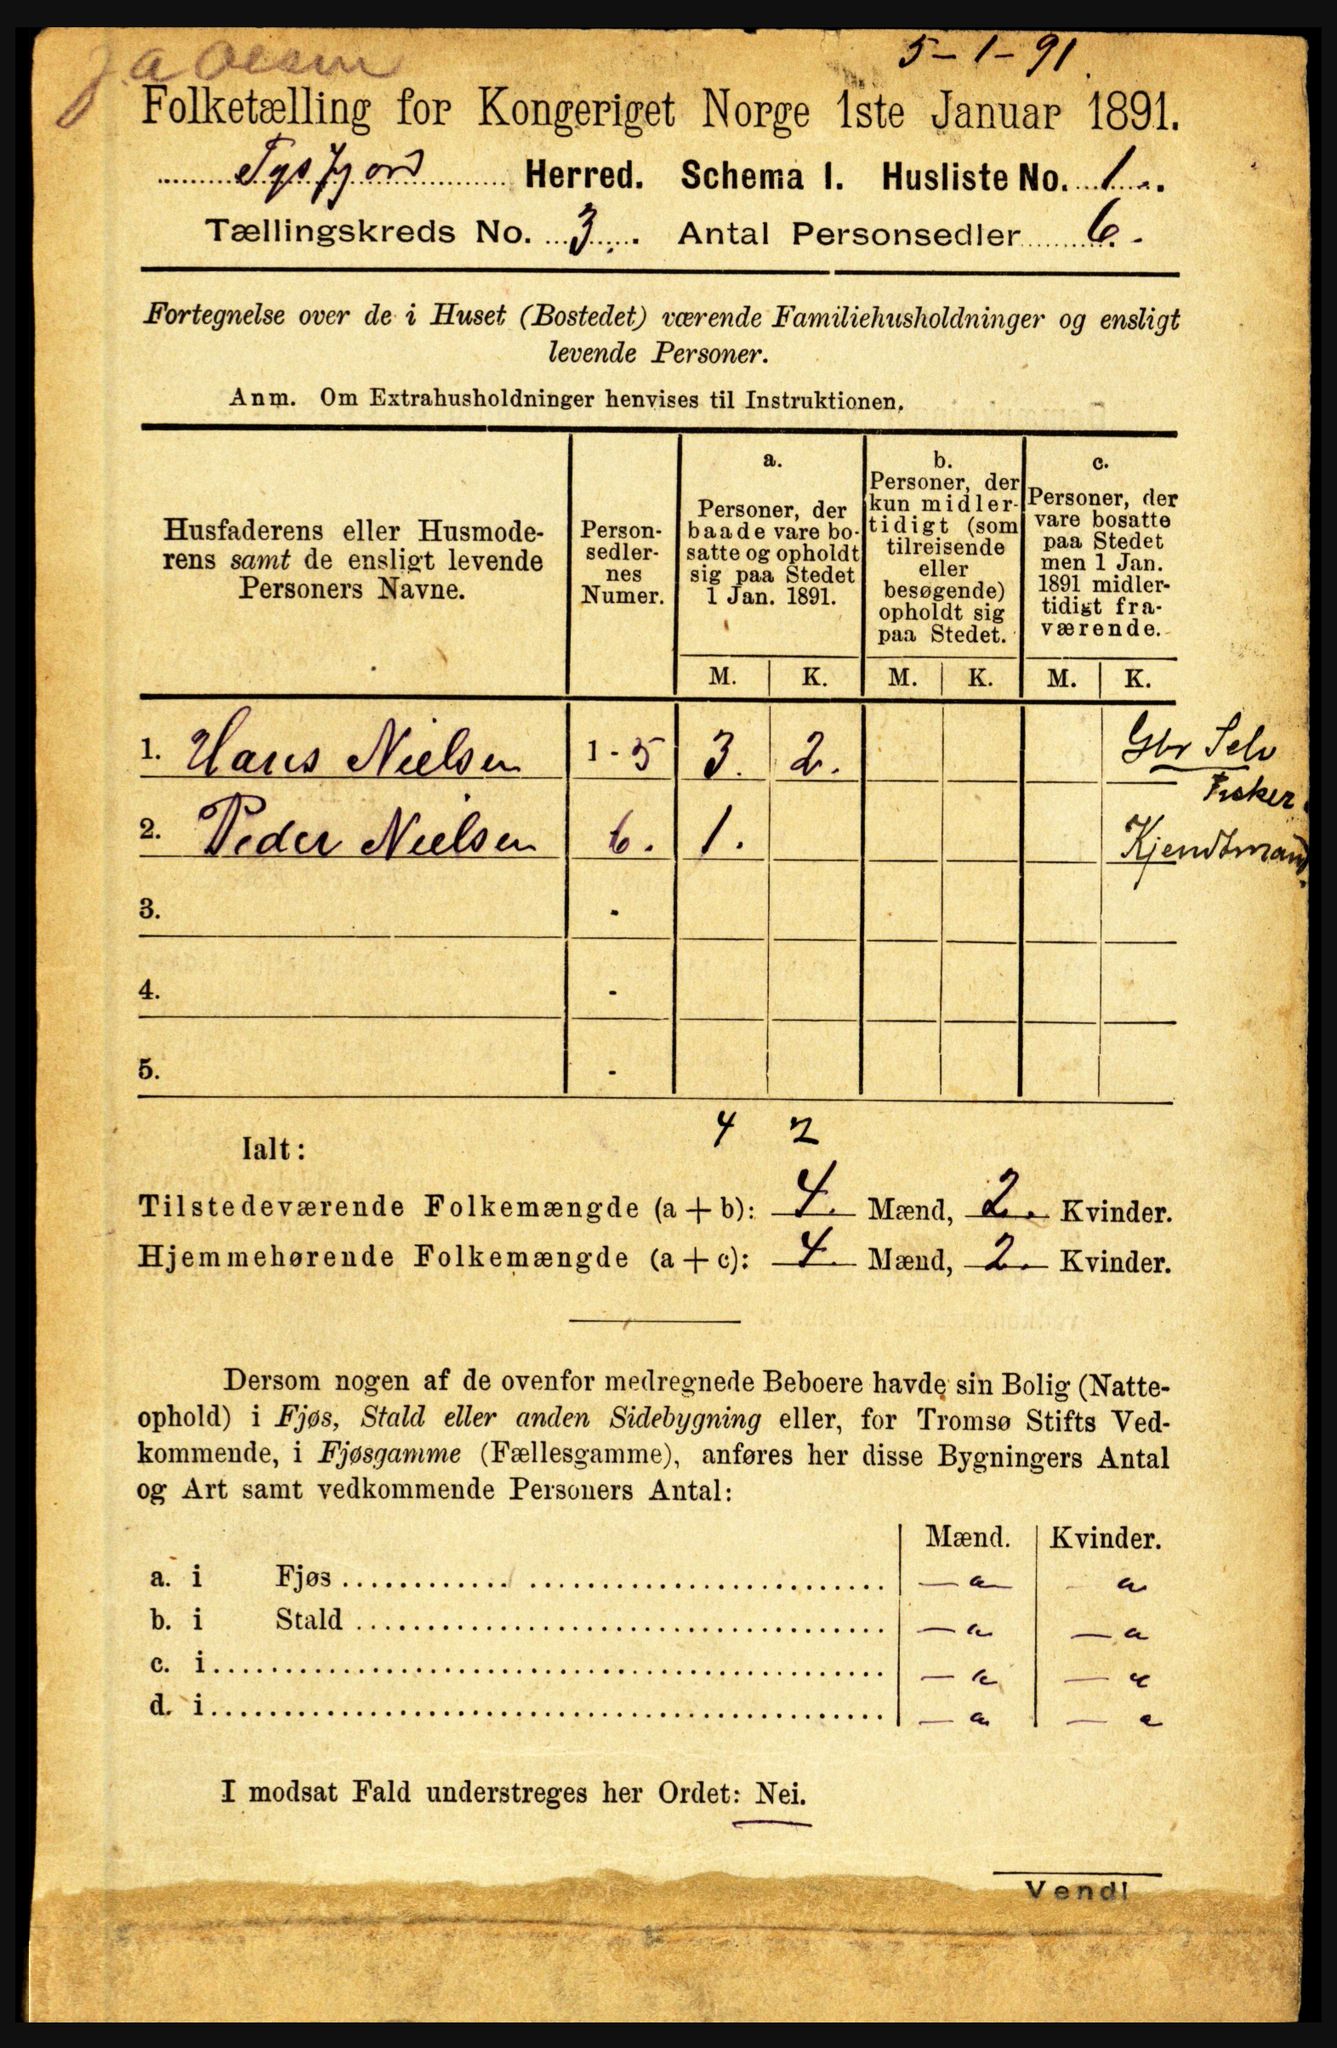 5-1-91.
Folketælling for Kongeriget Norge 1ste Januar 1891.
Tysfjord Herred. Schema 1. Husliste No. 1.
Tællingskreds No. 3. Antal Personsedler 6.
Fortegnelse over de i Huset (Bostedet) værende Familiehusholdninger og ensligt
levende Personer.
Anm. Om Extrahusholdninger henvises til Instruktionen.
Husfaderens eller Husmode-
rens samt de ensligt levende
Personers Navne.
Person-
sedler-
nes
Numer.
a.
Personer, der
baade vare bo-
satte og opholdt
sig paa Stedet
1 Jan. 1891.
b.
Personer, der
kun midler-
tidigt (som
tilreisende
eller
besøgende)
opholdt sig
paa Stedet.
c.
Personer, der
vare bosatte
paa Stedet
men 1 Jan.
1891 midler-
tidigt fra-
værende.
M. K. M. K. M. K.
1. Hans Nielsen 1-5 3. 2. Gbr Selv
Fisker
2. Peder Nielsen 6. 1. Kjendtmand
3. -
4. -
5. -
4 2
Ialt:
Tilstedeværende Folkemængde (a + b): 4. Mænd, 2. Kvinder.
Hjemmehørende Folkemængde (a + c): 4. Mænd, 2. Kvinder.
Dersom nogen af de ovenfor medregnede Beboere havde sin Bolig (Natte-
ophold) i Fjøs, Stald eller anden Sidebygning eller, for Tromsø Stifts Ved-
kommende, i Fjøsgamme (Fællesgamme), anføres her disse Bygningers Antal
og Art samt vedkommende Personers Antal:
Mænd. Kvinder.
a. i Fjøs
b. i Stald
c. i
d. i
I modsat Fald understreges her Ordet: Nei.
Vend!